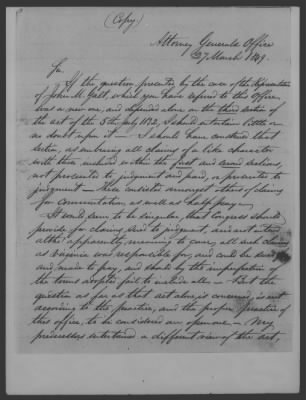 (Copy)
Attorney Generals Office
27 March 1849.
Sir,
If the question presented by the case of the Representatives
of John M. Galt, which you have referred to this Office,
was a new one, and depended alone on the third section of
the act of the 5th July 1832, I should entertain little or
no doubt upon it – I should have construed that
section, as embracing all claims of a like character
with those included within the first and second sections,
not prosecuted to judgment and paid, or prosecuted to
judgment – these consisted amongst others of claims
for commutation as well as half pay –
It would seem to be singular, that Congress should
provide for claims sued to judgment, and not intend
altho' apparently meaning to cover, all such claims
as Virginia was responsible for, and could be sued
and made to pay, and should by the imperfection of
the terms adopted fail to include all – But the
question as far as that act alone is concerned, is not
according to the practice, and the proper practice of
this office, to be considered an open one – My
predecessors entertained a different view of the act,